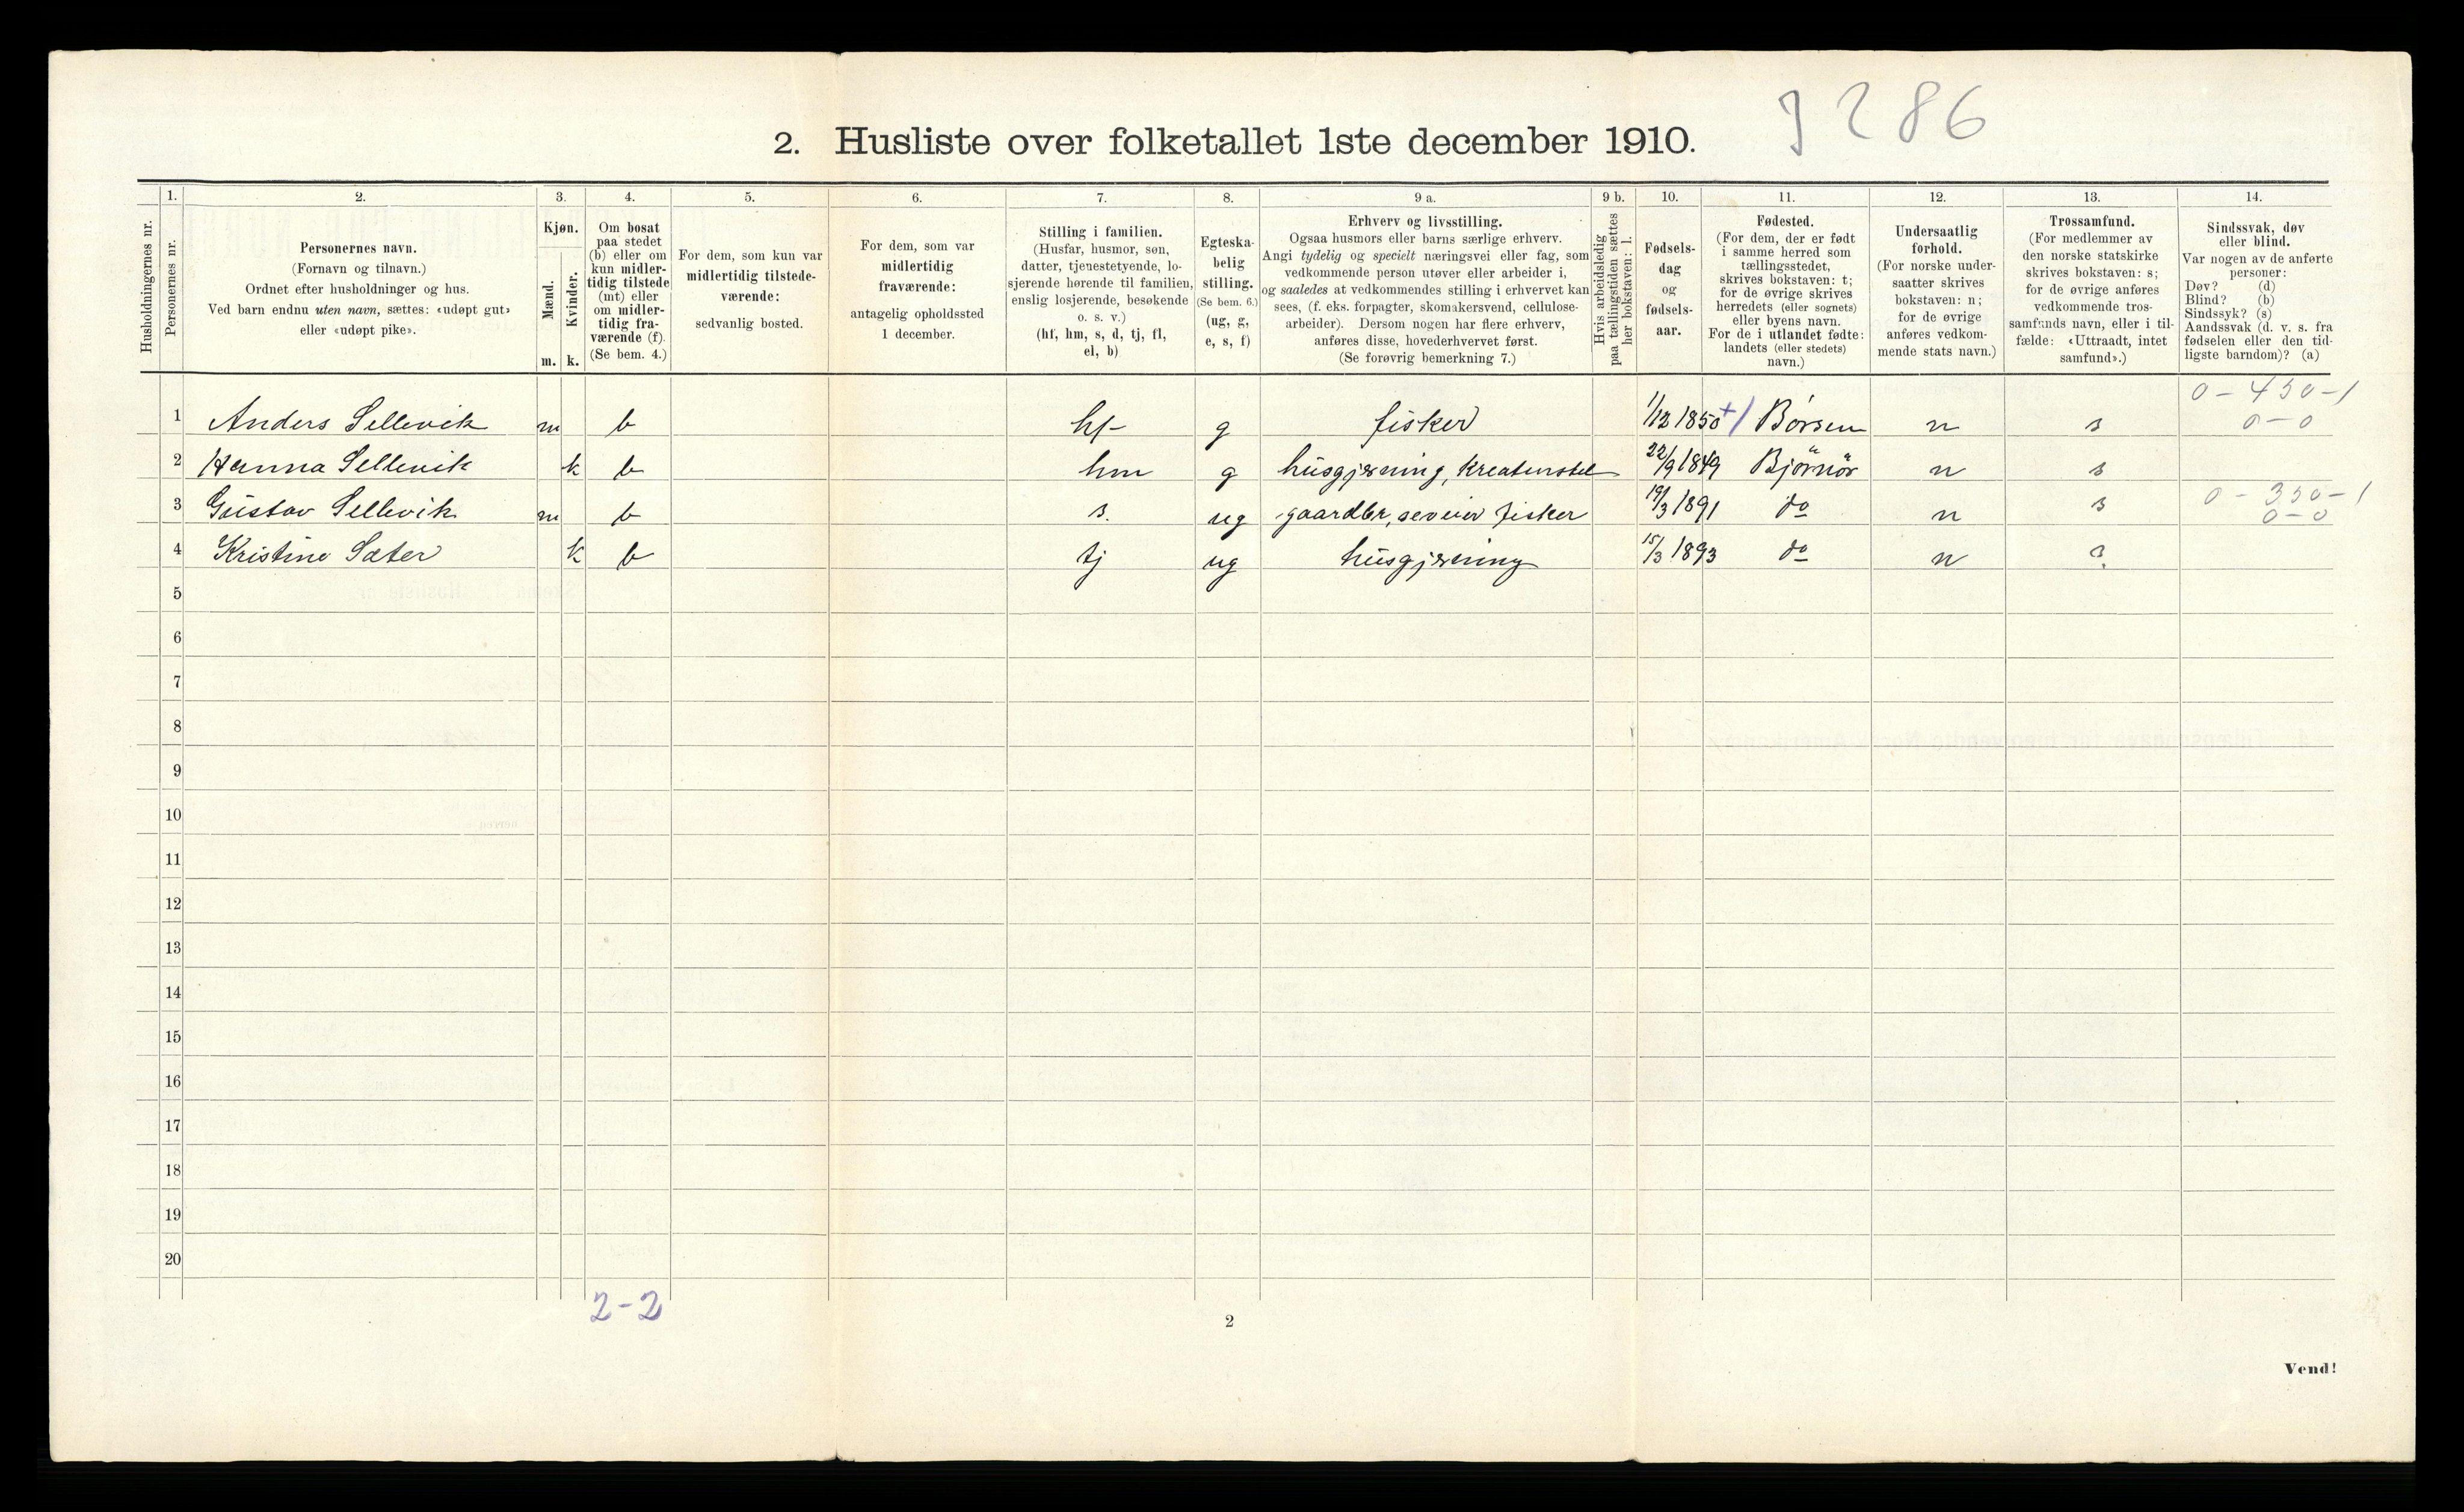 J 286
2. Husliste over folketallet 1ste december 1910.
Husholdningernes nr.
1.
Personernes nr.
2.
Personernes navn.
(Fornavn og tilnavn.)
Ordnet efter husholdninger og hus.
Ved barn endnu uten navn, sættes: «udøpt gut»
eller «udøpt pike».
3.
Kjøn.
Mænd.
Kvinder.
m. k.
4.
Om bosat
paa stedet
(b) eller om
kun midler-
tidig tilstede
(mt) eller
om midler-
tidig fra-
værende (f).
(Se bem. 4.)
5.
For dem, som kun var
midlertidig tilstede-
værende:
sedvanlig bosted.
6.
For dem, som var
midlertidig
fraværende:
antagelig opholdssted
1 december.
7.
Stilling i familien.
(Husfar, husmor, søn,
datter, tjenestetyende, lo-
sjerende hørende til familien,
enslig losjerende, besøkende
o. s. v.)
(hf, hm, s, d, tj, fl,
el, b)
8.
Egteska-
belig
stilling.
(Se bem. 6.)
(ug, g,
e, s, f)
9 a.
Erhverv og livsstilling.
Ogsaa husmors eller barns særlige erhverv.
Angi tydelig og specielt næringsvei eller fag, som
vedkommende person utøver eller arbeider i,
og saaledes at vedkommendes stilling i erhvervet kan
sees, (f. eks. forpagter, skomakersvend, cellulose-
arbeider). Dersom nogen har flere erhverv,
anføres disse, hovederhvervet først.
(Se forøvrig bemerkning 7.)
9 b.
Hvis arbeidsledig
paa tællingstiden sættes
her bokstaven: l.
10.
Fødsels-
dag
og
fødsels-
aar.
11.
Fødested.
(For dem, der er født
i samme herred som
tællingsstedet,
skrives bokstaven: t;
for de øvrige skrives
herredets (eller sognets)
eller byens navn.
For de i utlandet fødte:
landets (eller stedets)
navn.)
12.
Undersaatlig
forhold.
(For norske under-
saatter skrives
bokstaven: n;
for de øvrige
anføres vedkom-
mende stats navn.)
13.
Trossamfund.
(For medlemmer av
den norske statskirke
skrives bokstaven: s;
for de øvrige anføres
vedkommende tros-
samfunds navn, eller i til-
fælde: «Uttraadt, intet
samfund».)
14.
Sindssvak, døv
eller blind.
Var nogen av de anførte
personer:
Døv? (d)
Blind? (b)
Sindssyk? (s)
Aandssvak (d. v. s. fra
fødselen eller den tid-
ligste barndom)? (a)
0 - 450 - 1
1 Anders Sellevik m b hf g fisker 1/12 1850 +/ Börsen n s 0 - 0
2 Hanna Sellevik k b hm g husgjerning, kreaturstel 22/9 1849 Björnör n s
0 - 350 - 1
3 Gustav Sellevik m b s. ug gaardbr, fisker 19/3 1891 do n s 0 - 0
4 Kristine Sæter k b tj ug husgjerning 15/3 1893 do n s
5
6
7
8
9
10
11
12
13
14
15
16
17
18
19
20
2-2
2
Vend!